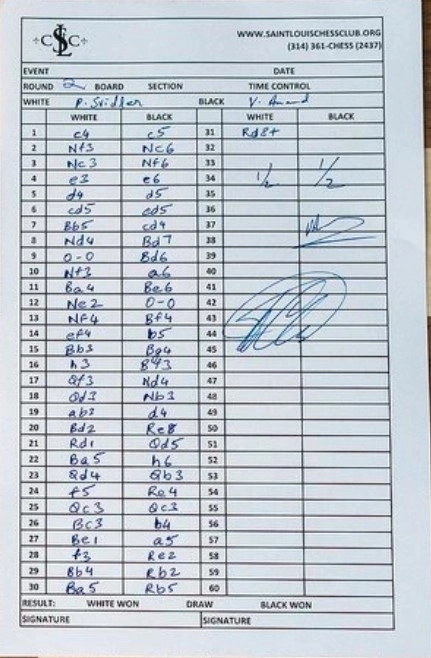 SLCC
WWW.SAINTLOUISCHESSCLUB.ORG
(314) 361-CHESS (2437)
EVENT DATE
ROUND 2 BOARD SECTION TIME CONTROL
WHITE P. Svidler BLACK V. Anand
WHITE BLACK WHITE BLACK
1 c4 c5 31 Rd8+
2 Nf3 Nc6 32
3 Nc3 Nf6 33
4 e3 e6 34 1/2 1/2
5 d4 d5 35
6 cd5 ed5 36
7 Bb5 cd4 37
8 Nd4 Bd7 38
9 0-0 Bd6 39
10 Nf3 a6 40
11 Ba4 Be6 41
12 Ne2 0-0 42
13 Nf4 Bf4 43
14 ef4 b5 44
15 Bb3 Bg4 45
16 h3 Bf3 46
17 Qf3 Nd4 47
18 Qd3 Nb3 48
19 ab3 d4 49
20 Bd2 Re8 50
21 Rd1 Qd5 51
22 Ba5 h6 52
23 Qd4 Qb3 53
24 f5 Re4 54
25 Qc3 Qc3 55
26 Bc3 b4 56
27 Be1 a5 57
28 f3 Re2 58
29 Bb4 Rb2 59
30 Ba5 Rb5 60
RESULT: WHITE WON DRAW BLACK WON
SIGNATURE SIGNATURE